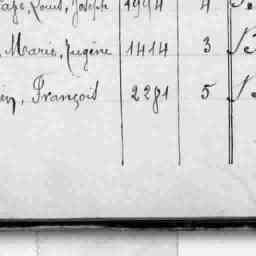 Louis, Joseph 1994 4
Marie, Eugène 1414 3
François 2281 5